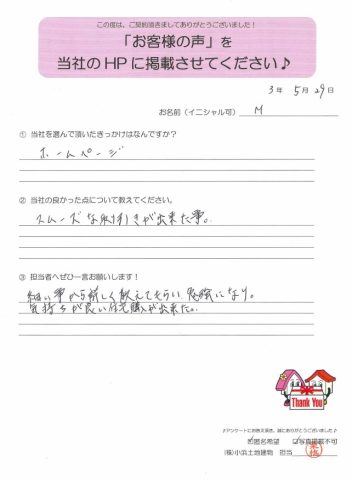 この度は、ご契約頂きましてありがとうございました！
「お客様の声」を
当社のHPに掲載させてください♪
3年 5月29日
お名前（イニシャル可） M
① 当社を選んで頂いたきっかけはなんですか？
ホームページ
② 当社の良かった点について教えてください。
スムーズな取引きが出来た事。
③ 担当者へぜひ一言お願いします！
細い事から詳しく教えてもらい、勉強になり。
気持ちが良い住宅購入が出来た。
Thank You
♪アンケートにお答え頂き、誠にありがとうございました♪
匿名希望 □写真掲載不可
(株)小浜土地建物 担当